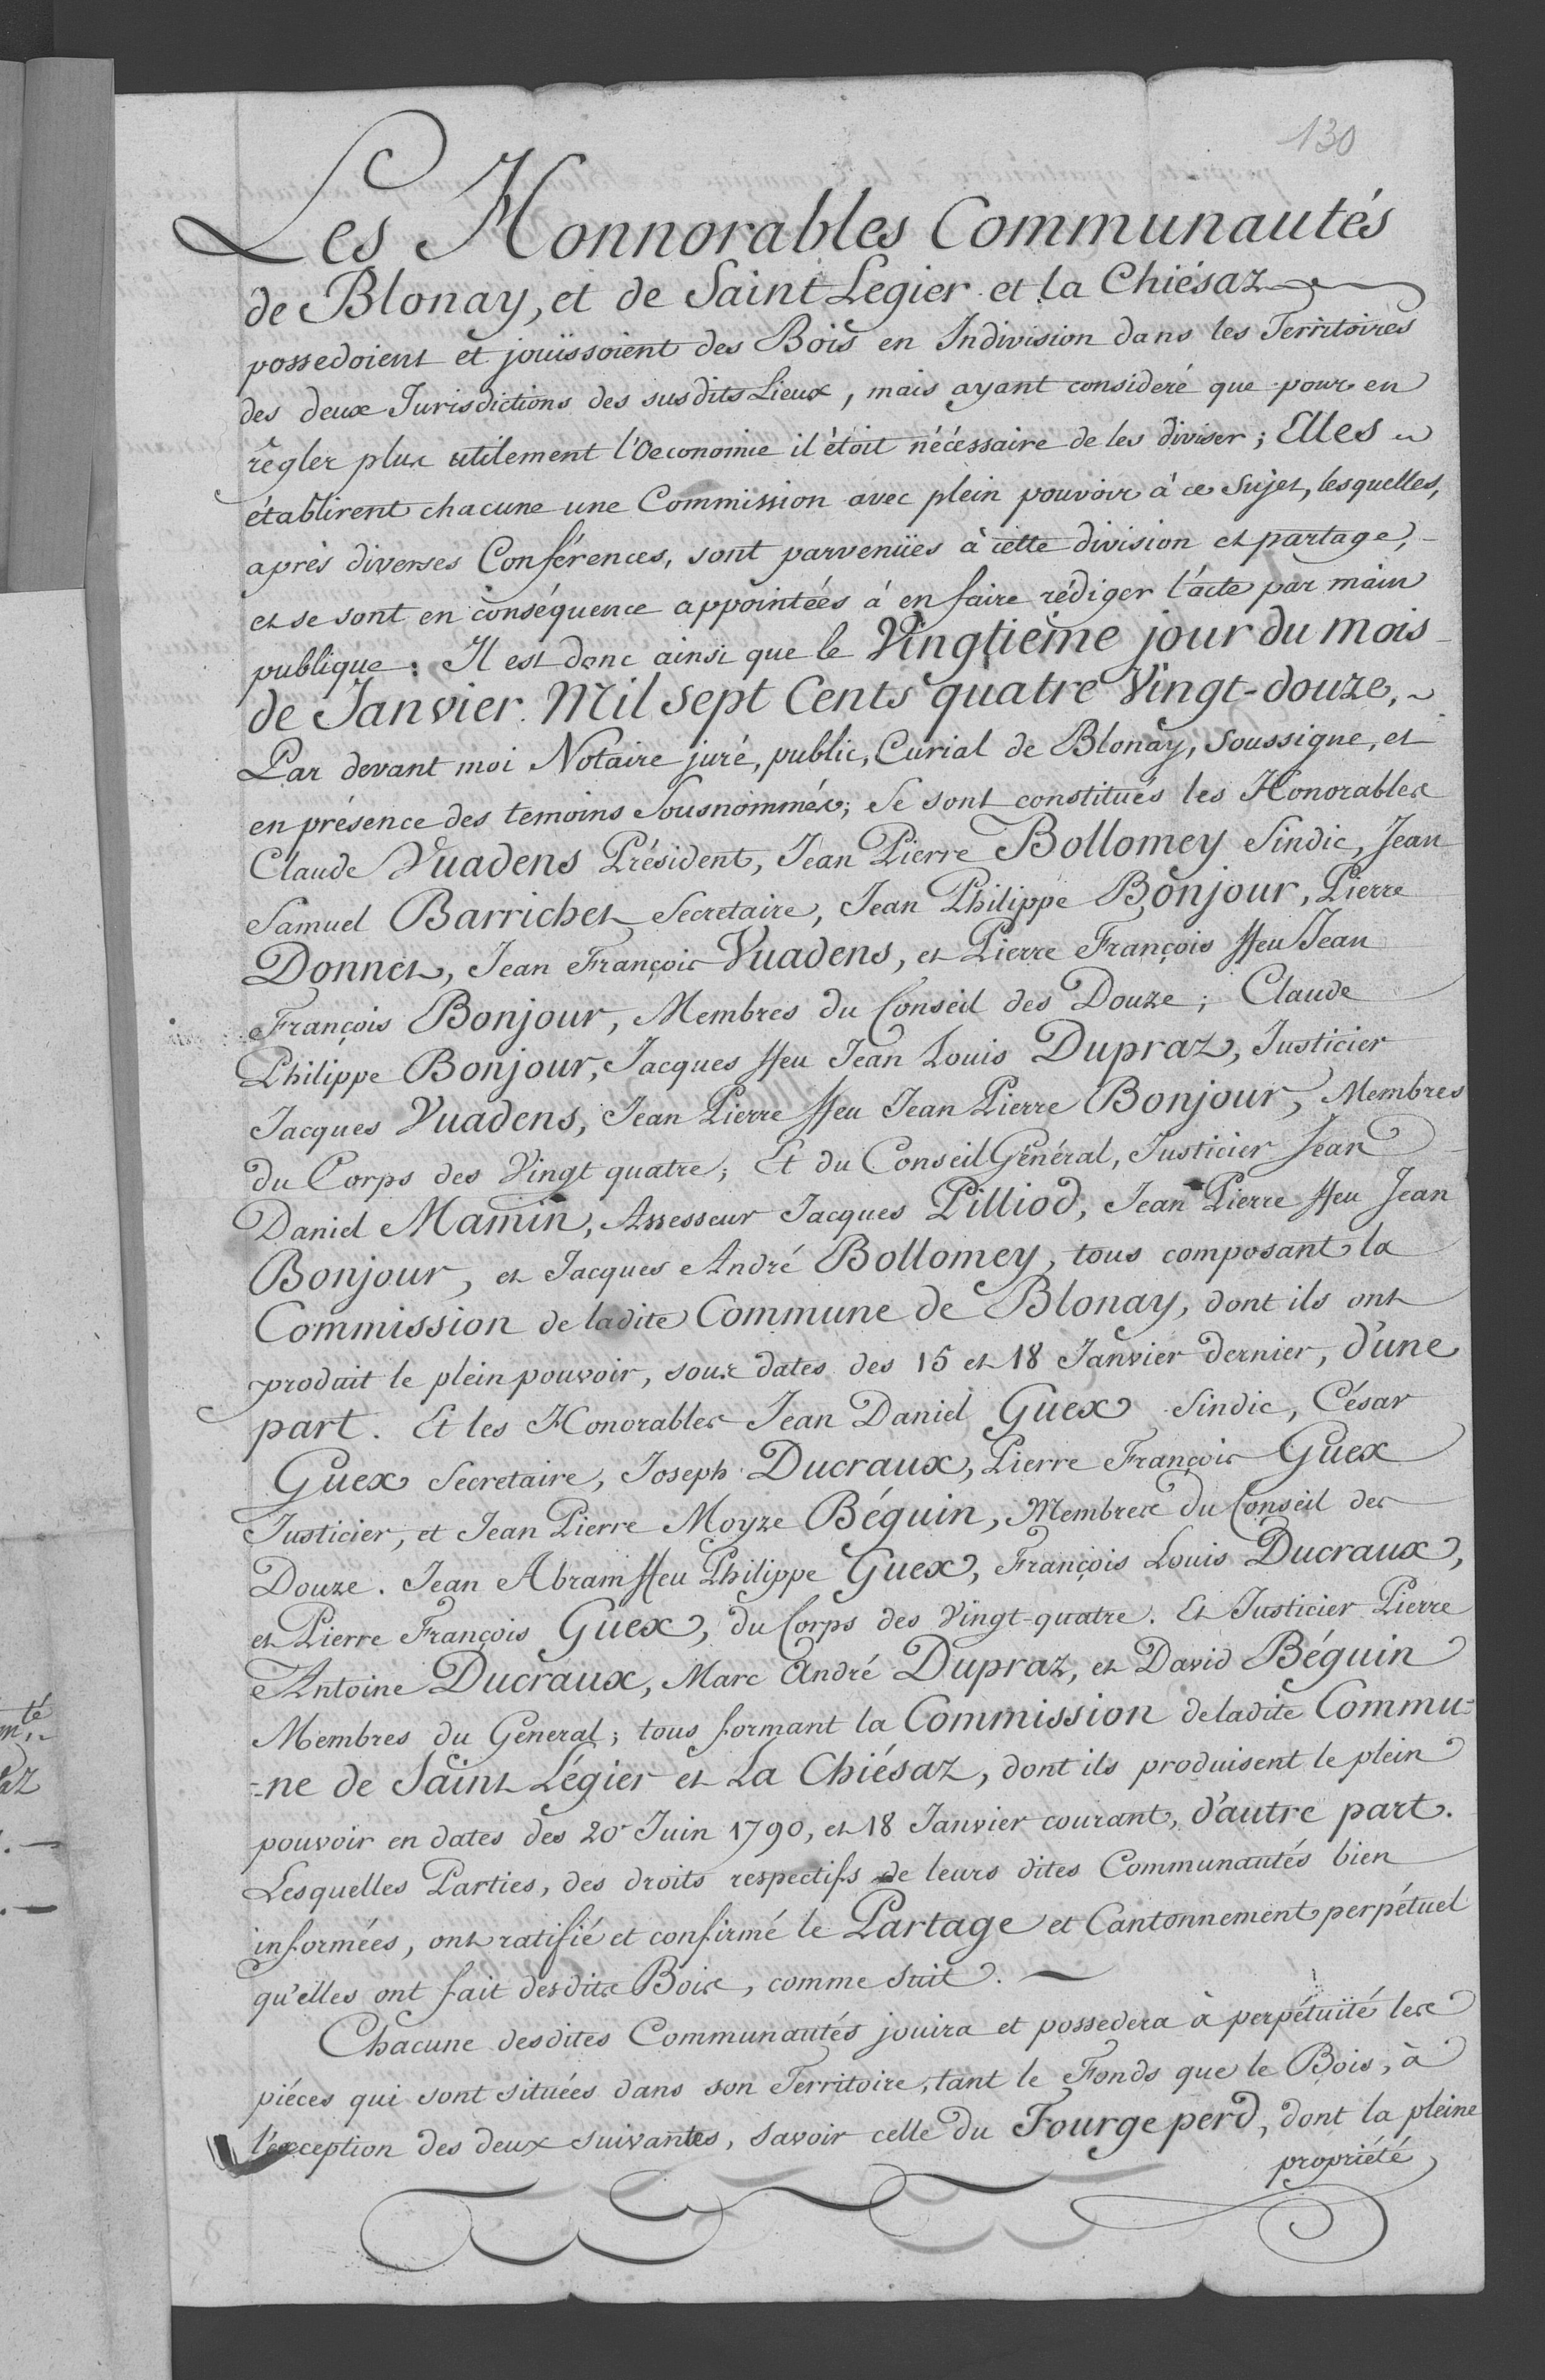 130
Les Honnorables Communautés
de Blonay, et de Saint Legier et la Chiésaz
possedoient et jouïssoient des Bois en Indivision dans les Territoires
des deux Jurisdictions des susdits Lieux, mais ayant consideré que pour en
règler plus utilement l'Oeconomie il étoit nécéssaire de les diviser; Elles
établirent chacune une Commission avec plein pouvoir à ce Sujet, lesquelles,
après diverses Conférences, sont parvenües à cette division et partage,
et se sont en conséquence appointées à en faire rédiger l'acte par main
publique: Il est donc ainsi que le Vingtième jour du mois
de Janvier Mil sept Cents quatre Vingt-douze,
Par devant moi Notaire juré, public, Curial de Blonay, Soussigne, et
en présence des temoins Sousnommés; Se sont constitués les Honorables
Claude Vuadens Président, Jean Pierre Bollomey Sindic, Jean
Samuel Barrichet Secretaire, Jean Philippe Bonjour, Pierre
Donnet, Jean François Vuadens, et Pierre François ffeu Jean
François Bonjour, Membres du Conseil des Douze; Claude
Philippe Bonjour, Jacques ffeu Jean Louis Dupraz, Justicier
Jacques Vuadens, Jean Pierre ffeu Jean Pierre Bonjour, Membres
du Corps des Vingt quatre; Et du Conseil Général, Justicier Jean
Daniel Mamin, Assesseur Jacques Pilliod, Jean Pierre ffeu Jean
Bonjour, et Jacques André Bollomey, tous composant la
Commission de ladite Commune de Blonay, dont ils ont
produit le plein pouvoir, sous dates des 15 et 18 Janvier dernier, d'une
part. Et les Honorables Jean Daniel Guex Sindic, César
Guex Secretaire, Joseph Ducraux, Pierre François Guex
Justicier, et Jean Pierre Moyze Béguin, Membres du Conseil des
Douze. Jean Abram ffeu Philippe Guex, François Louis Ducraux,
et Pierre François Guex, du Corps des Vingt-quatre. Et Justicier Pierre
Antoine Ducraux, Marc André Dupraz, et David Béguin
Membres du Général; tous formant la Commission de ladite Commu-
=ne de Saint Légier et La Chiésaz, dont ils produisent le plein
pouvoir en dates des 20 Juin 1790, et 18 Janvier courant, d'autre part.
Lesquelles Parties, des droits respectifs de leurs dites Communautés bien
informées, ont ratifié et confirmé le Partage et Cantonnement perpétuel
qu'elles ont fait desdits Bois, comme suit.
Chacune desdites Communautés jouira et possedera à perpétuité les
piéces qui sont situées dans son Territoire, tant le Fonds que le Bois, à
l'exception des deux suivantes, savoir celle du Fourge perd, dont la pleine
propriété